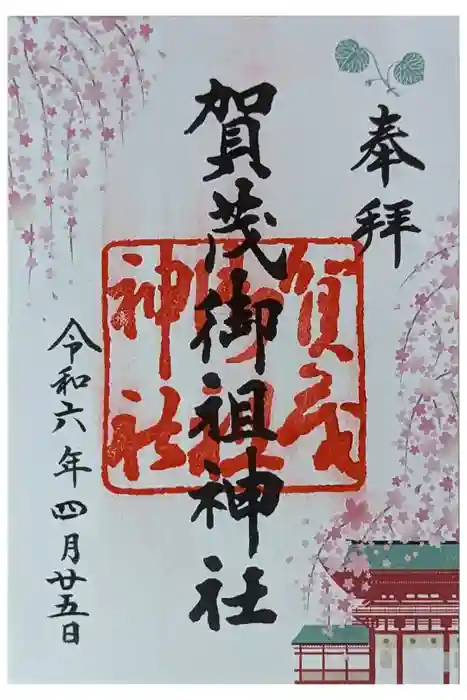 奉拝
賀茂御祖神社
賀茂
御祖
神社
令和六年四月廿五日